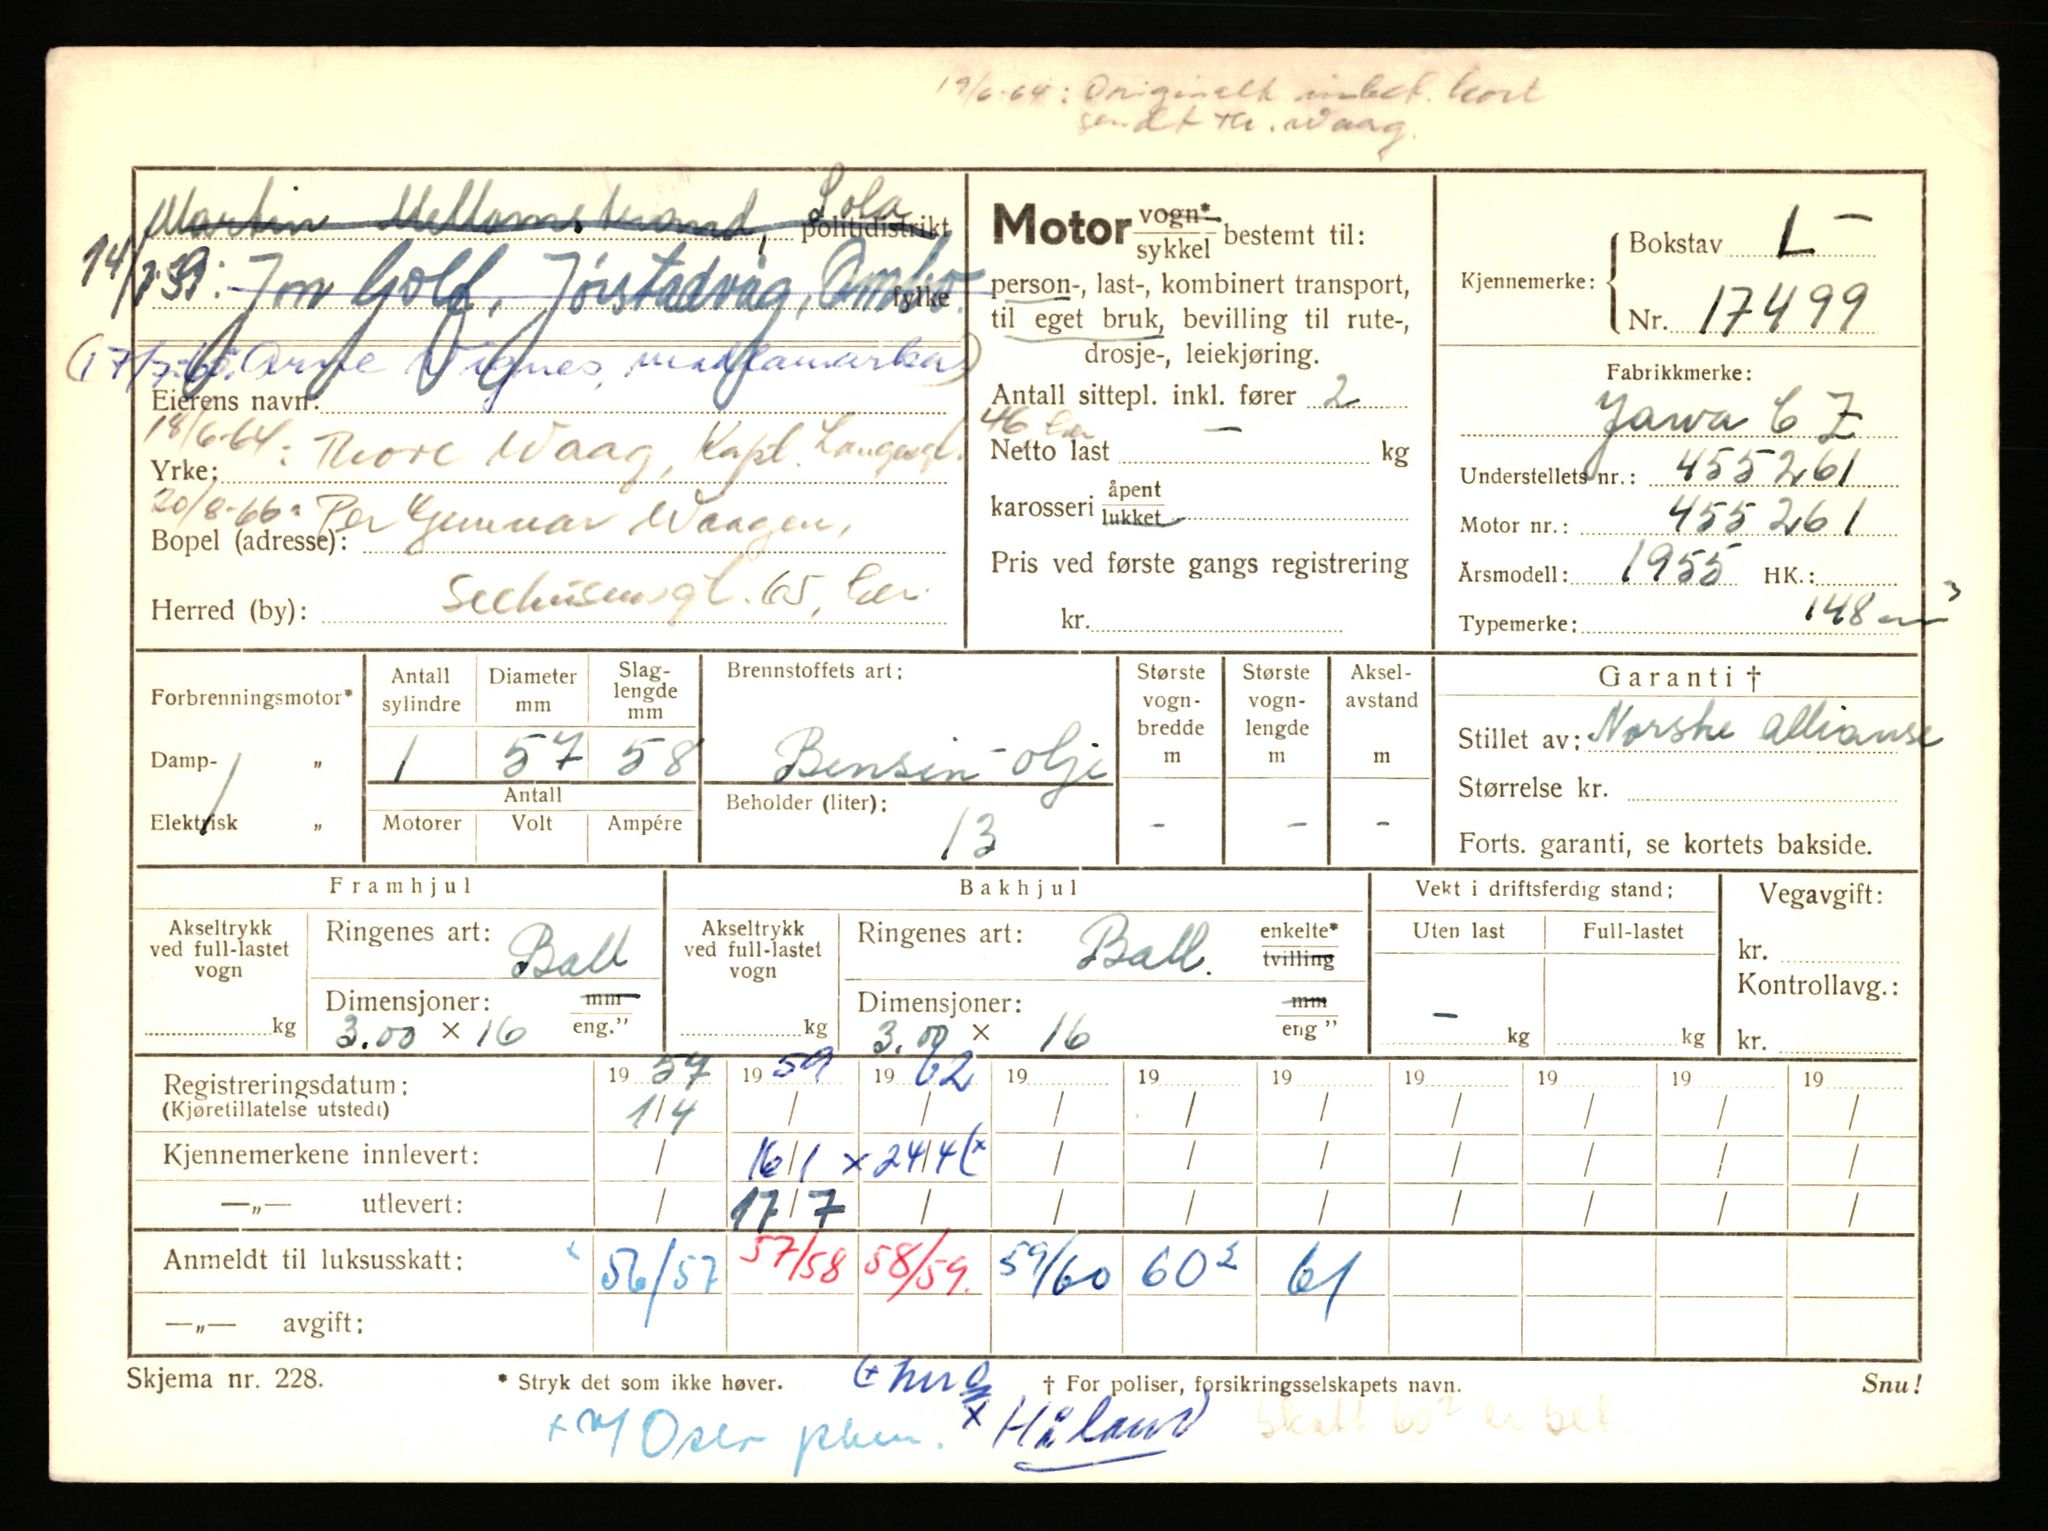 19/6-64: Originalt innbet. kort
sendt Th. Waag.
Martin Mellomstrand, Sola
politidistrikt
14/7.59: Jon Golf, Jørstadvåg, Ombo.
fylke
(17/7-63. Arne Vignes, madlamarka)
Eierens navn:
18/6-64: Thore Waag, Kapt. Langesgt. 46 Gr
Yrke:
20/8-66: Per Gunnar Waagen,
Bopel (adresse):
Seehusensgt. 65, Gr.
Herred (by):
Motor vogn* sykkel bestemt til:
person-, last-, kombinert transport,
til eget bruk, bevilling til rute-,
drosje-, leiekjøring.
Antall sittepl. inkl. fører 2
Netto last – kg
karosseri åpent lukket
Pris ved første gangs registrering
kr.
Kjennemerke: Bokstav L –
Nr. 17499
Fabrikkmerke:
Jawa C Z
Understellets nr.: 455261
Motor nr.: 455261
Årsmodell: 1955 HK.:
Typemerke: 148 cm³
Forbrenningsmotor*
Damp- „
Elektrisk „
Antall sylindre
Diameter mm
Slag-lengde mm
1 57 58
Antall
Motorer Volt Ampére
Brennstoffets art:
Bensin-olje
Beholder (liter):
13
Største vogn-bredde m
–
Største vogn-lengde m
–
Aksel-avstand m
–
Garanti †
Stillet av: Norske allianse
Størrelse kr.
Forts. garanti, se kortets bakside.
Framhjul
Akseltrykk ved full-lastet vogn
kg
Ringenes art: Ball
Dimensjoner: mm
3.00 × 16 eng.”
Bakhjul
Akseltrykk ved full-lastet vogn
kg
Ringenes art: Ball. enkelte* tvilling
Dimensjoner: mm
3.00 × 16 eng ”
Vekt i driftsferdig stand:
Uten last Full-lastet
– kg kg
Vegavgift:
kr.
Kontrollavg.:
kr.
Registreringsdatum: 19 57 19 59 19 62 19 19 19 19 19 19 19
(Kjøretillatelse utstedt) 1/4 / / / / / / / / /
Kjennemerkene innlevert: / 16/1 x 24/4 (x / / / / / / /
—„— utlevert: / 17/7 / / / / / / / /
Anmeldt til luksusskatt: 56/57 57/58 58/59. 59/60 60² 61
—„— avgift:
Skjema nr. 228.
* Stryk det som ikke høver.
† For poliser, forsikringsselskapets navn.
Snu!
x Håland
Skatt 60² er bet.